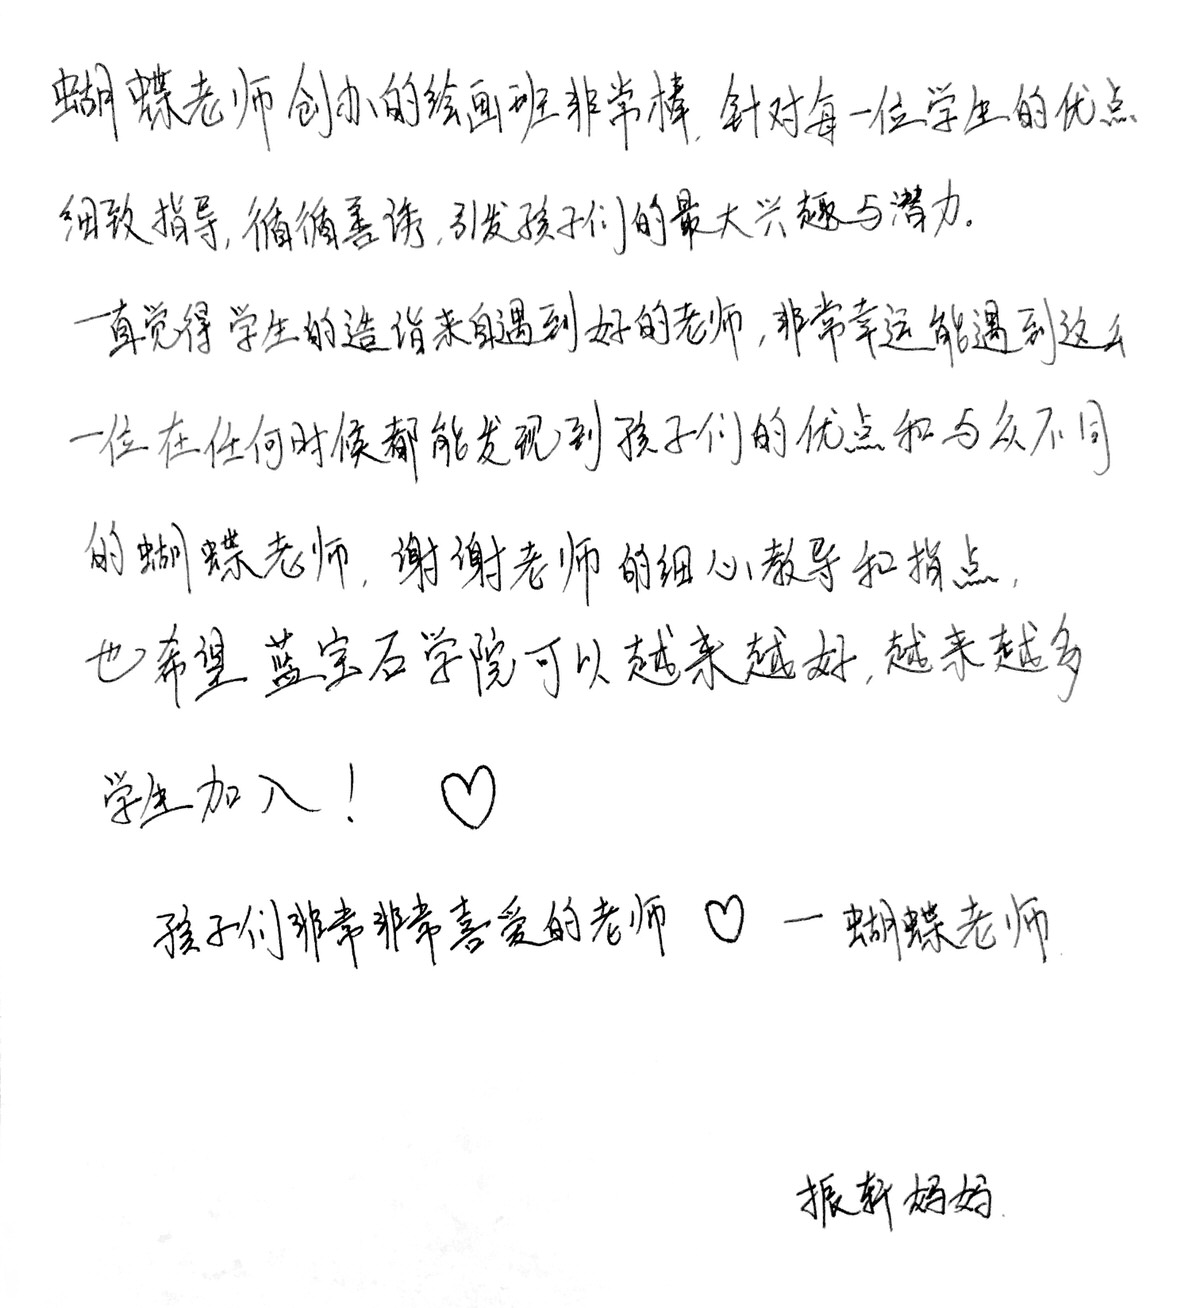 蝴蝶老师创办的绘画班非常棒, 针对每一位学生的优点
细致指导, 循循善诱, 引发孩子们的最大兴趣与潜力。
一直觉得学生的造诣来自遇到好的老师, 非常幸运能遇到这么
一位在任何时候都能发现到孩子们的优点和与众不同
的蝴蝶老师, 谢谢老师的细心教导和指点,
也希望蓝宝石学院可以越来越好, 越来越多
学生加入! ♡
孩子们非常非常喜爱的老师 ♡ 一 蝴蝶老师.
振轩妈妈.